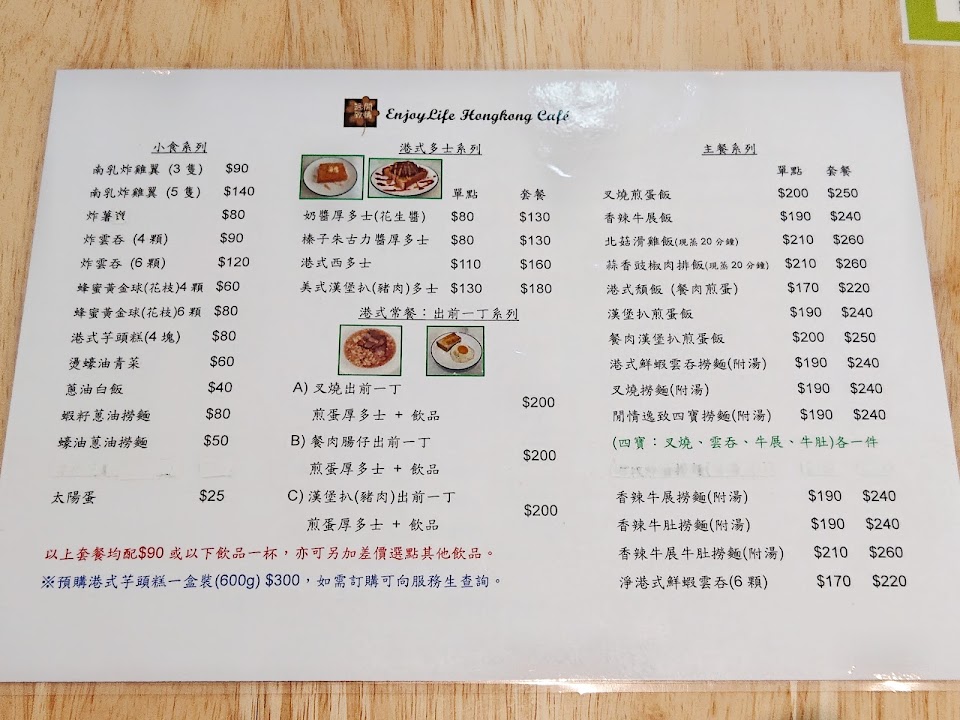 閒情逸致
EnjoyLife Hongkong Café
小食系列
南乳炸雞翼 (3 隻) $90
南乳炸雞翼 (5 隻) $140
炸薯 $80
炸雲吞 (4 顆) $90
炸雲吞 (6 顆) $120
蜂蜜黃金球(花枝)4 顆 $60
蜂蜜黃金球(花枝)6 顆 $80
港式芋頭糕(4 塊) $80
燙蠔油青菜 $60
蔥油白飯 $40
蝦籽蔥油撈麵 $80
蠔油蔥油撈麵 $50
太陽蛋 $25
港式多士系列
單點 套餐
奶醬厚多士(花生醬) $80 $130
榛子朱古力醬厚多士 $80 $130
港式西多士 $110 $160
美式漢堡扒(豬肉)多士 $130 $180
港式常餐：出前一丁系列
A) 叉燒出前一丁
煎蛋厚多士 + 飲品 $200
B) 餐肉腸仔出前一丁
煎蛋厚多士 + 飲品 $200
C) 漢堡扒(豬肉)出前一丁
煎蛋厚多士 + 飲品 $200
主餐系列
單點 套餐
叉燒煎蛋飯 $200 $250
香辣牛展飯 $190 $240
北菇滑雞飯(現蒸 20 分鐘) $210 $260
蒜香豉椒肉排飯(現蒸 20 分鐘) $210 $260
港式頹飯 (餐肉煎蛋) $170 $220
漢堡扒煎蛋飯 $190 $240
餐肉漢堡扒煎蛋飯 $200 $250
港式鮮蝦雲吞撈麵(附湯) $190 $240
叉燒撈麵(附湯) $190 $240
閒情逸致四寶撈麵(附湯) $190 $240
(四寶：叉燒、雲吞、牛展、牛肚)各一件
香辣牛展撈麵(附湯) $190 $240
香辣牛肚撈麵(附湯) $190 $240
香辣牛展牛肚撈麵(附湯) $210 $260
淨港式鮮蝦雲吞(6 顆) $170 $220
以上套餐均配$90 或以下飲品一杯，亦可另加差價選點其他飲品。
※預購港式芋頭糕一盒裝(600g) $300，如需訂購可向服務生查詢。